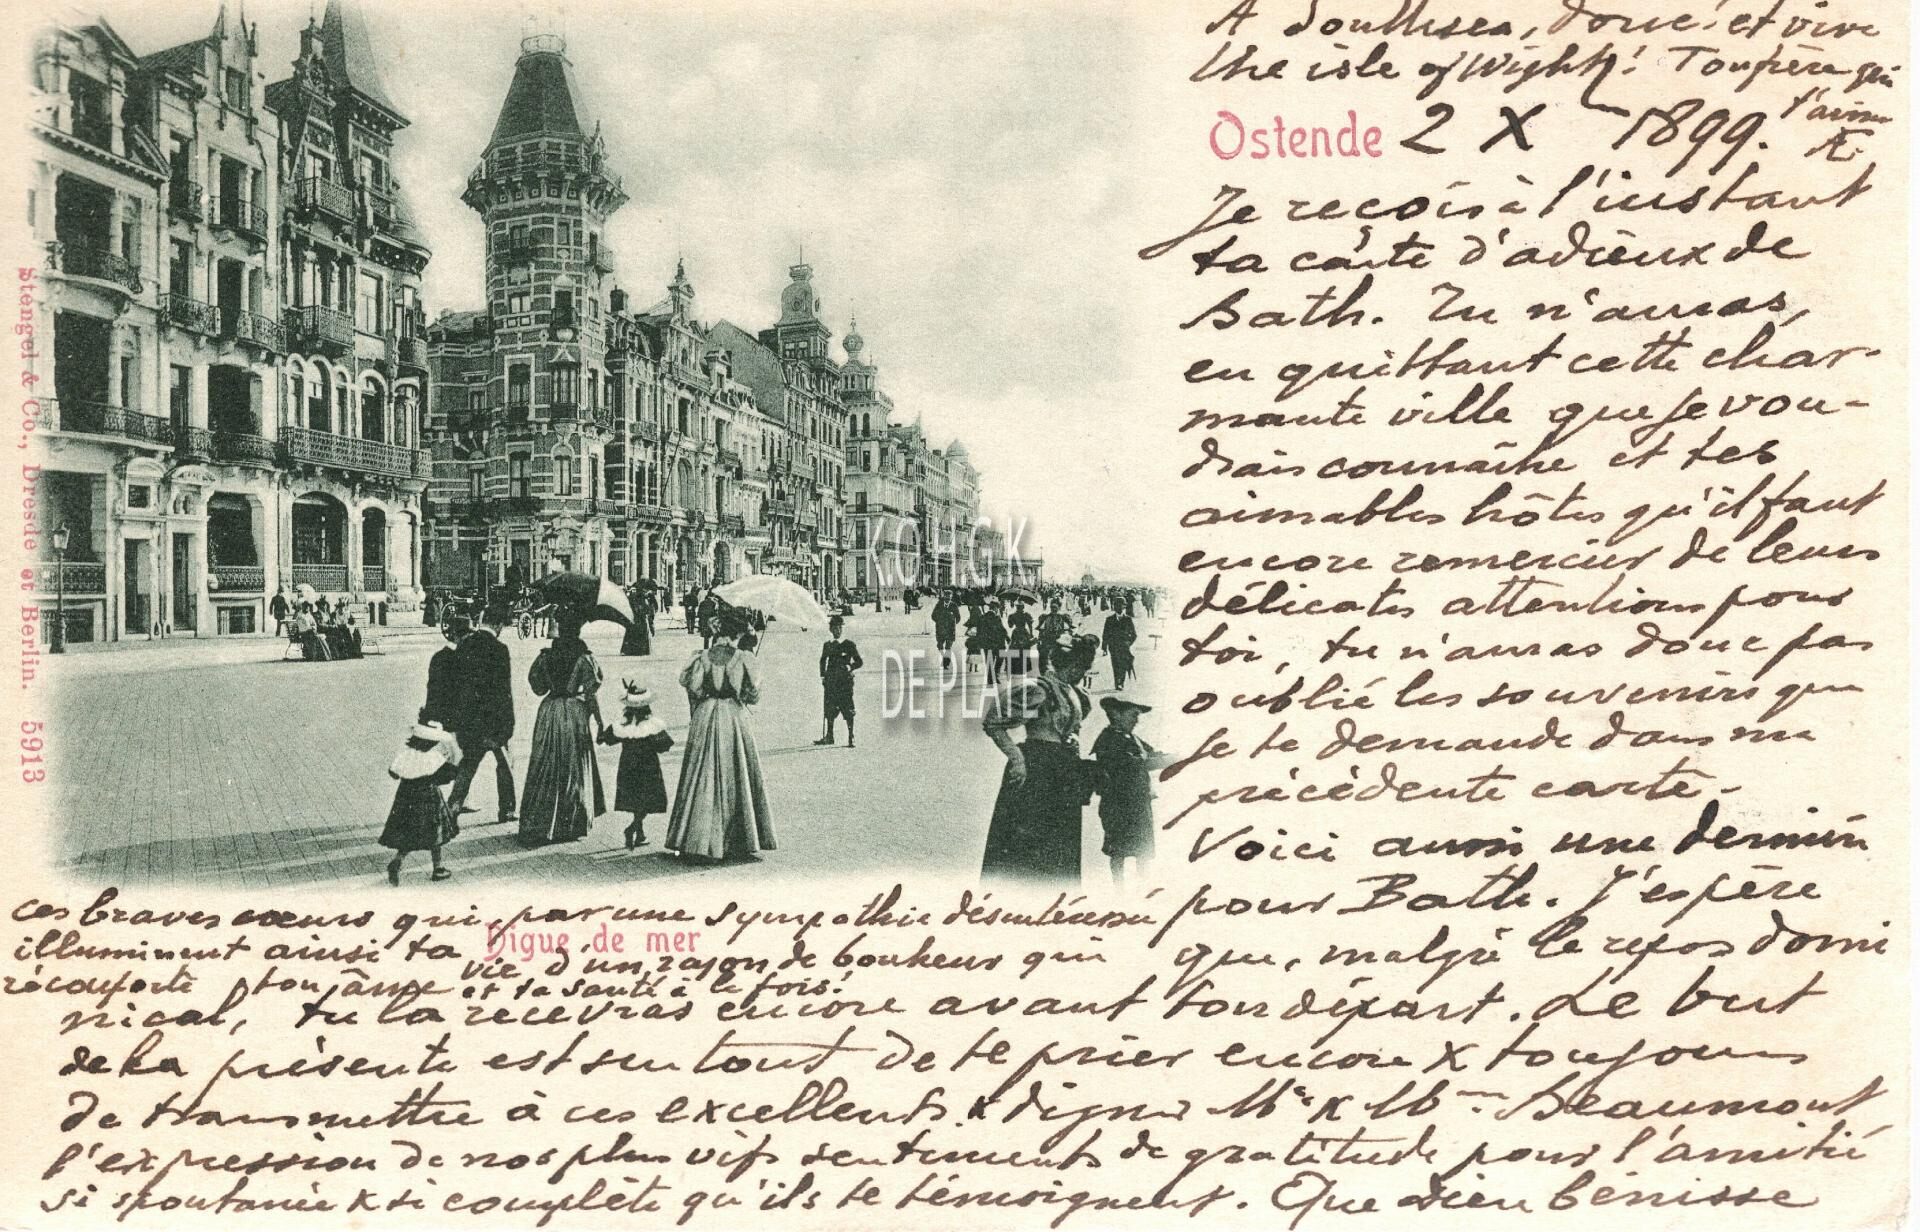 A Southsea, donc! et vive
the isle of Wight! Ton père qui
t'aime
Æ.
Ostende 2 X 1899.
Je reçois à l'instant
ta carte d'adieux de
Bath. Tu n'auras,
en quittant cette char-
mante ville que je vou-
drais connaître et tes
aimables hôtes qu'il faut
encore remercier de leurs
délicates attentions pour
toi, tu n'auras donc pas
oublié les souvenirs que
je te demande dans ma
précédente carte.
Voici aussi une dernière
pour Bath. J'espère
que, malgré le repos domi
nical, tu la recevras encore avant ton départ. Le but
de la présente est surtout de te prier encore & toujours
de transmettre à ces excellents & dignes Mr & Mme Beaumont
l'expression de nos plus vifs sentiments de gratitude pour l'amitié
si spontanée & si complète qu'ils te témoignent. Que Dieu bénisse
ces braves cœurs qui, par une sympathie désintéressée
illuminent ainsi ta vie d'un rayon de bonheur qui
réconforte ton âme et ta santé à la fois!
Digue de mer
Stengel & Co., Dresde et Berlin. 5913
K.O.H.G.K.
DE PLATE